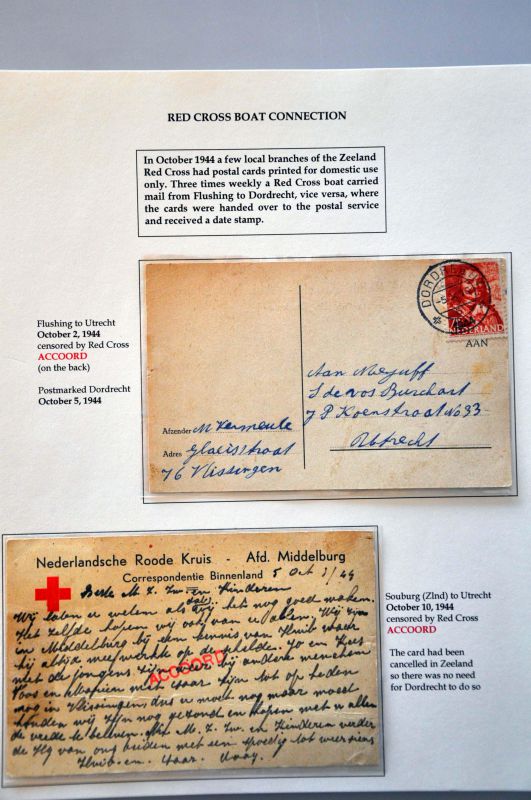 RED CROSS BOAT CONNECTION
In October 1944 a few local branches of the Zeeland
Red Cross had postal cards printed for domestic use
only. Three times weekly a Red Cross boat carried
mail from Flushing to Dordrecht, vice versa, where
the cards were handed over to the postal service
and received a date stamp.
Flushing to Utrecht
October 2, 1944
censored by Red Cross
ACCOORD
(on the back)
Postmarked Dordrecht
October 5, 1944
NEDERLAND
AAN
Aan Mejuff
S de vos Burchart
J P Koenstraat No 33
Utrecht
Afzender M Vermeule
Adres Glacisstraat
76 Vlissingen
Nederlandsche Roode Kruis - Afd. Middelburg
Correspondentie Binnenland 5 Oct
Beste M. Z. Zw. en Kinderen
Wij laten u weten als dat wij het nog goed maken.
Het zelfde hopen wij ook van u allen. Wij zijn
in Middelburg bij een kennis van Huib waar
hij altijd mee werkte op de schelde. Jo en
met de jongens zijn weer bij andere menschen
Koos en zijn tot op heden
nog in Vlissingen dus u moet nog maar moed
houden wij zijn nog gezond en hopen met u allen
de vrede te beleven. M. Z. Zw. en Kinderen verder
de van ons beiden met een spoedig tot weerziens
Huib en
ACCOORD
Souburg (Zlnd) to Utrecht
October 10, 1944
censored by Red Cross
ACCOORD
The card had been
cancelled in Zeeland
so there was no need
for Dordrecht to do so